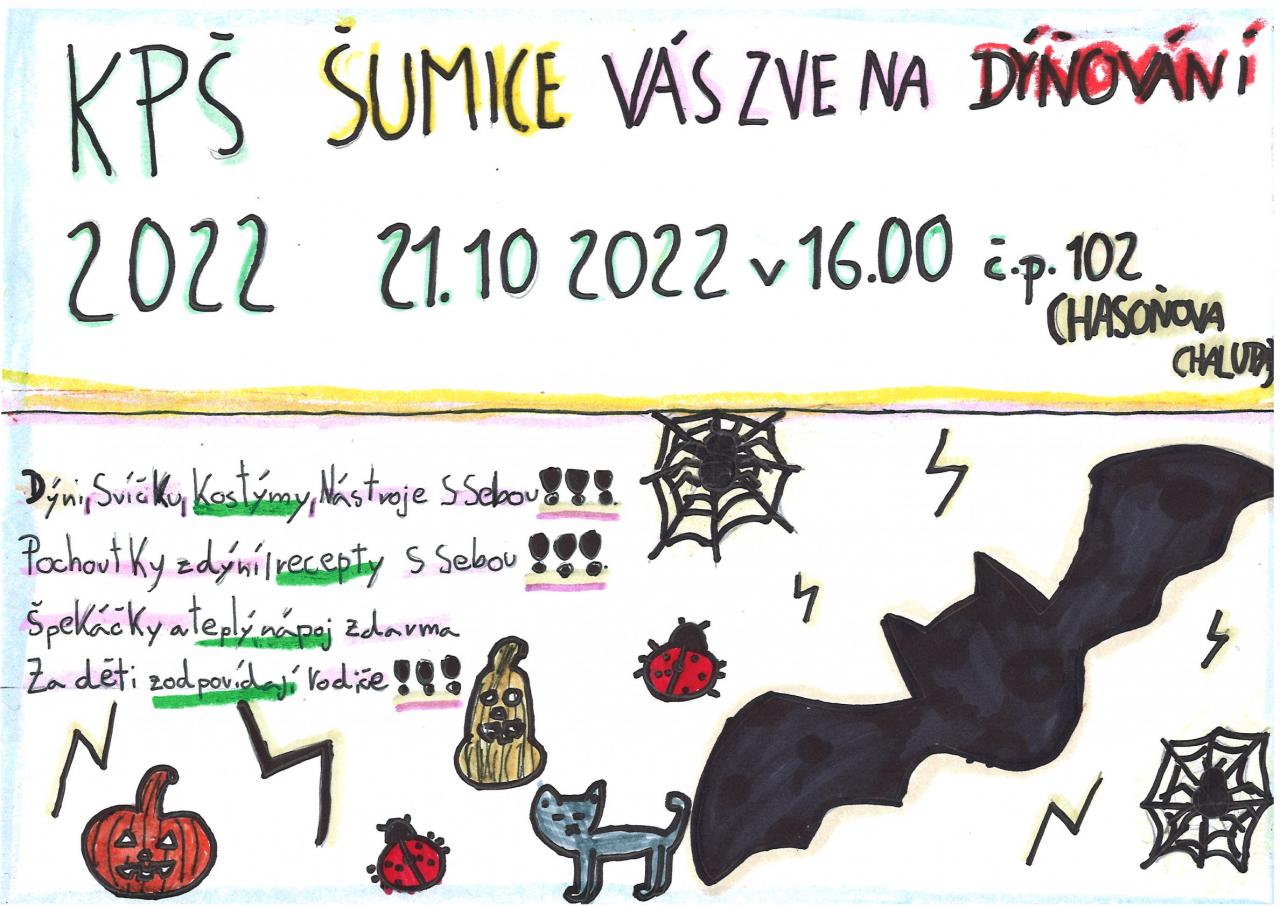 KPŠ ŠUMICE VÁS ZVE NA DÝŇOVÁNÍ
2022 21.10 2022 v 16.00 č.p. 102
(HASOŇOVA
CHALUPA)
Dýni, Svíčku, Kostýmy, Nástroje s sebou!!!
Pochoutky z dýní/recepty s sebou!!!.
Špekáčky a teplý nápoj zdarma
Za děti zodpovídají rodiče!!!